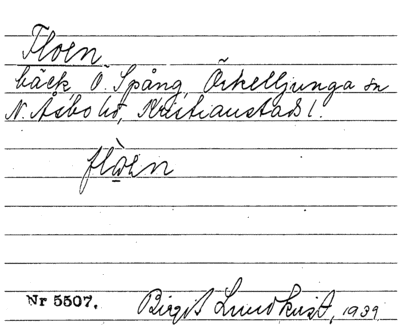 Floen
bäck, Ö. Spång, Örkelljunga sn
N. Åsbo hd, Kristianstads l.
flòen
Nr 5507.
Birgit Lundkvist, 1939